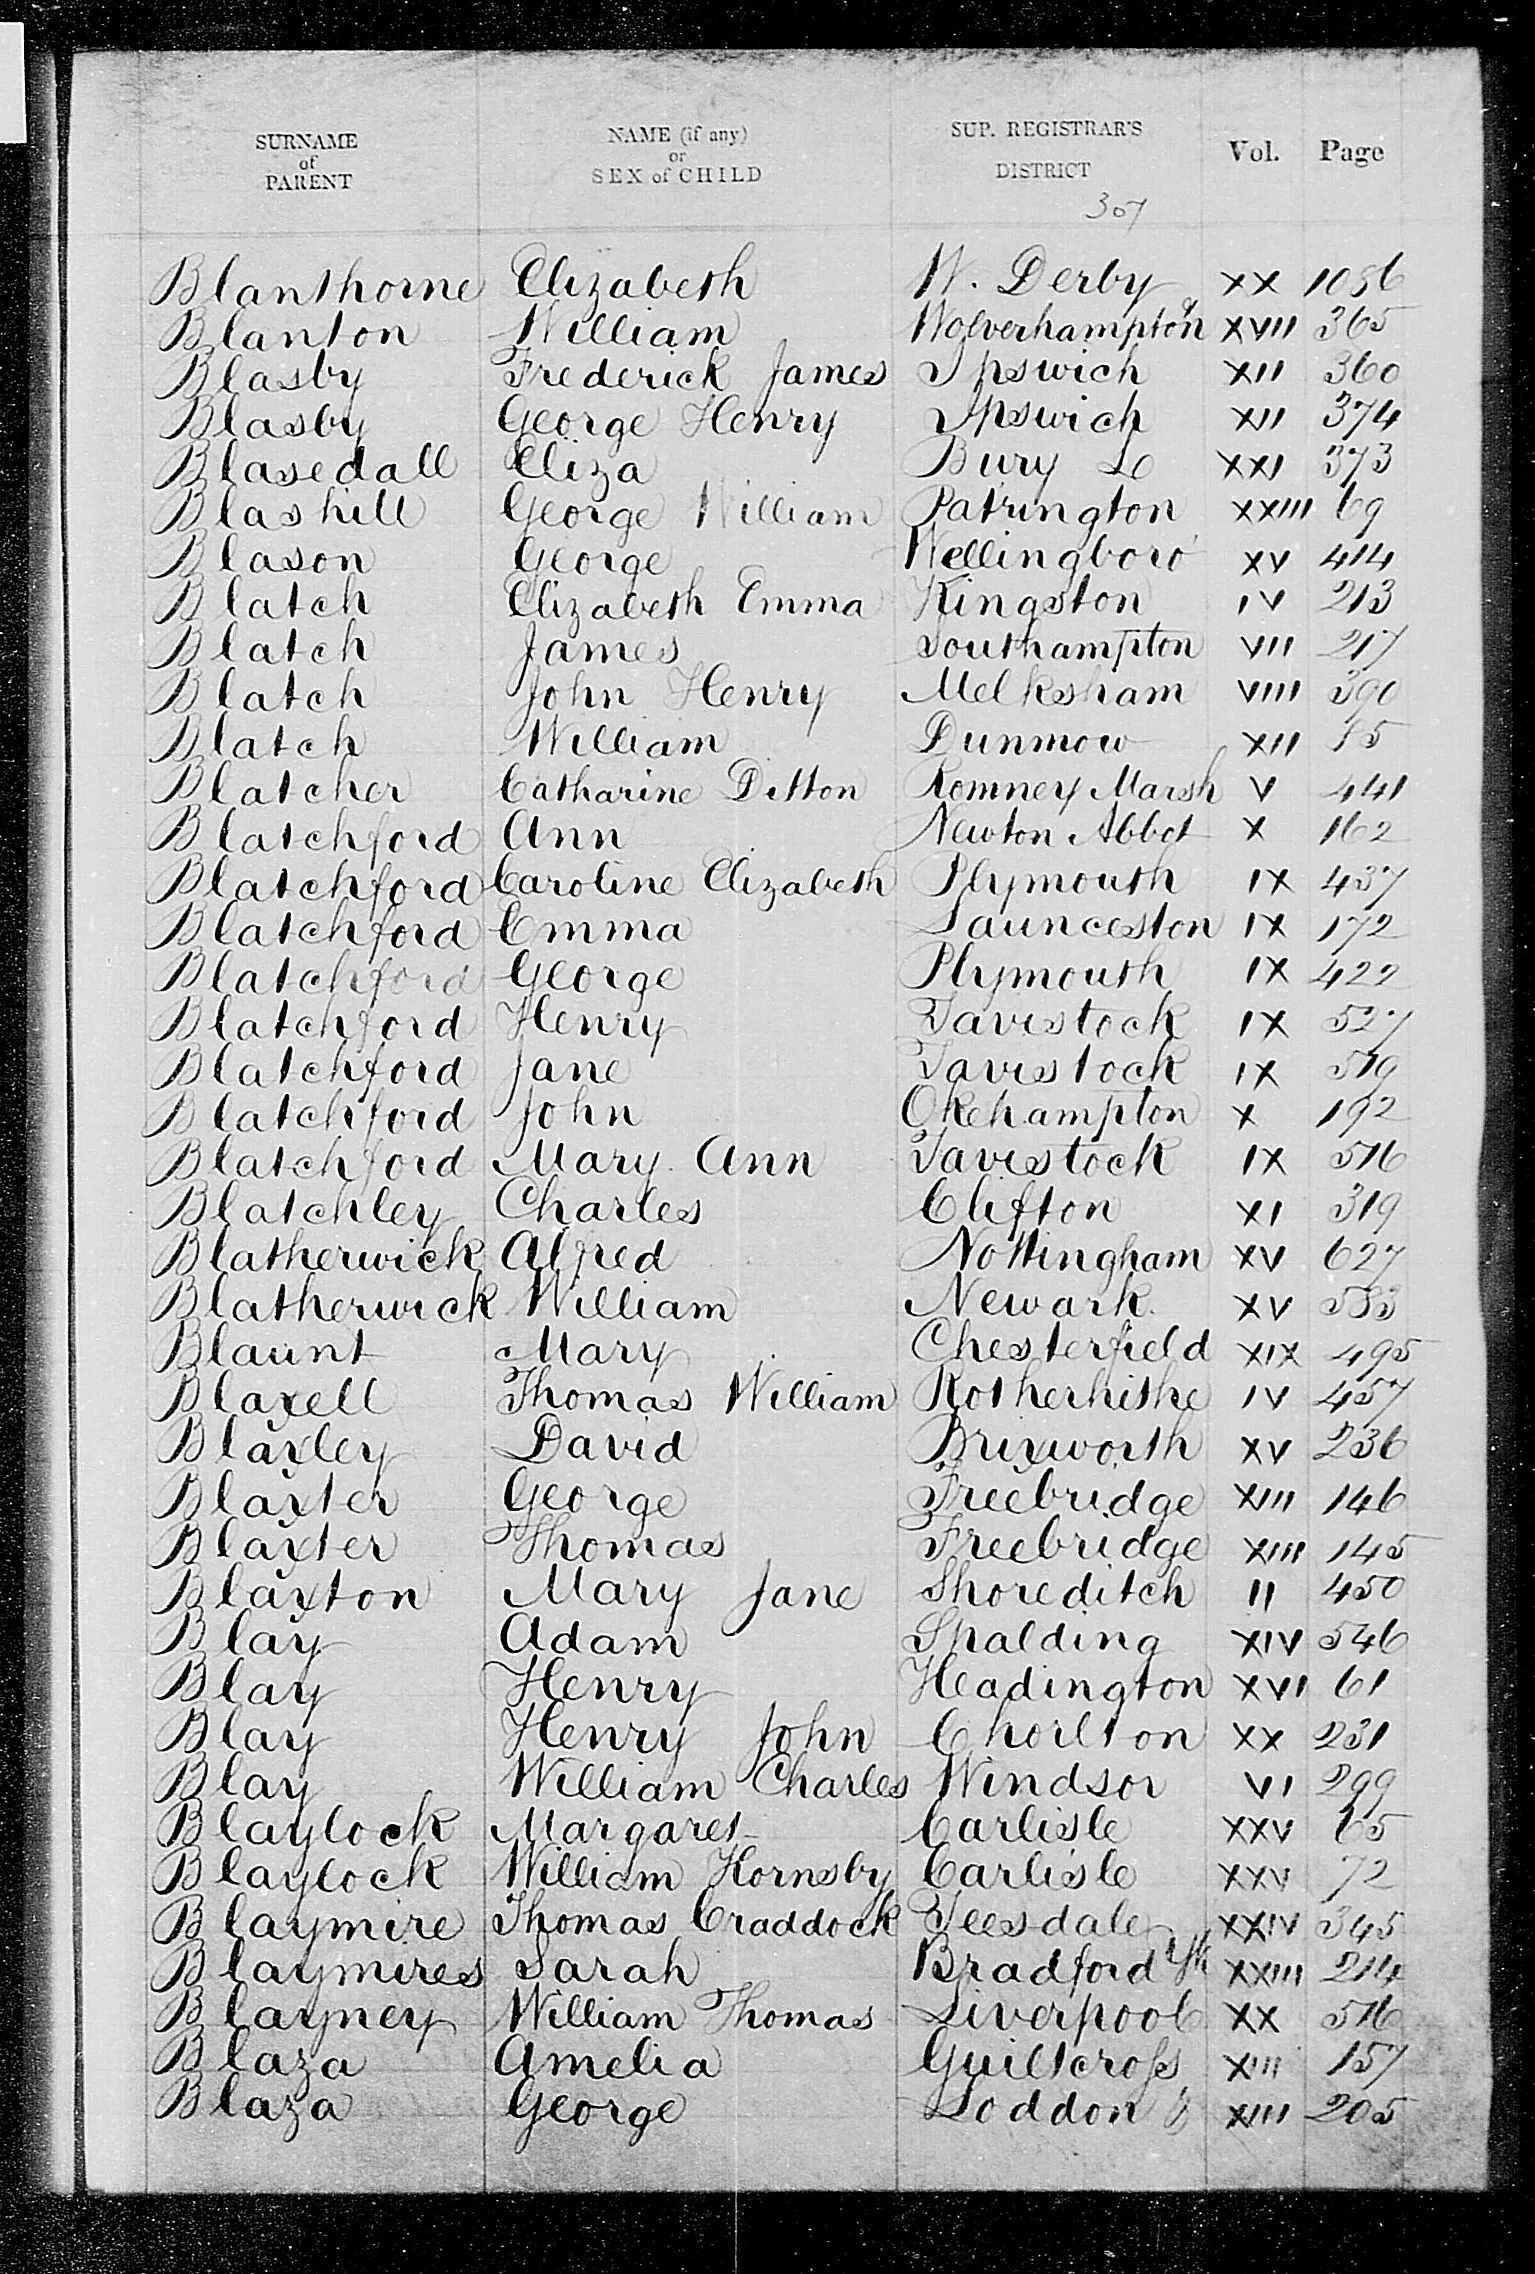 SURNAME of PARENT NAME (if any) or SEX of CHILD SUP. REGISTRAR'S DISTRICT Vol. Page
307
Blanthorne Elizabeth W. Derby XX 1086
Blanton William Wolverhampton XVII 365
Blasby Frederick James Ipswich XII 360
Blasby George Henry Ipswich XII 374
Blasedall Eliza Bury La XXI 373
Blashill George William Patrington XXIII 69
Blason George Wellingboro' XV 414
Blatch Elizabeth Emma Kingston IV 213
Blatch James Southampton VII 217
Blatch John Henry Melksham VIII 390
Blatch William Dunmow XII
Blatcher Catharine Ditton Romney Marsh V 441
Blatchford Ann Newton Abbot X 162
Blatchford Caroline Elizabeth Plymouth IX 437
Blatchford Emma Launceston IX 172
Blatchford George Plymouth IX 422
Blatchford Henry Tavistock IX 527
Blatchford Jane Tavistock IX 519
Blatchford John Okehampton X 192
Blatchford Mary Ann Tavistock IX 516
Blatchley Charles Clifton XI 319
Blatherwick Alfred Nottingham XV 627
Blatherwick William Newark XV 533
Blaunt Mary Chesterfield XIX 495
Blaxell Thomas William Rotherhithe IV 457
Blaxley David Brixworth XV 236
Blaxter George Freebridge XIII 146
Blaxter Thomas Freebridge XIII 145
Blaxton Mary Jane Shoreditch II 450
Blay Adam Spalding XIV 546
Blay Henry Headington XVI 61
Blay Henry John Chorlton XX 231
Blay William Charles Windsor VI 299
Blaylock Margaret Carlisle XXV 65
Blaylock William Hornsby Carlisle XXV 72
Blaymire Thomas Craddock Teesdale XXIV 345
Blaymires Sarah Bradford Yk XXIII 214
Blayney William Thomas Liverpool XX 516
Blaza Amelia Guiltcross XIII 157
Blaza George Loddon XIII 205